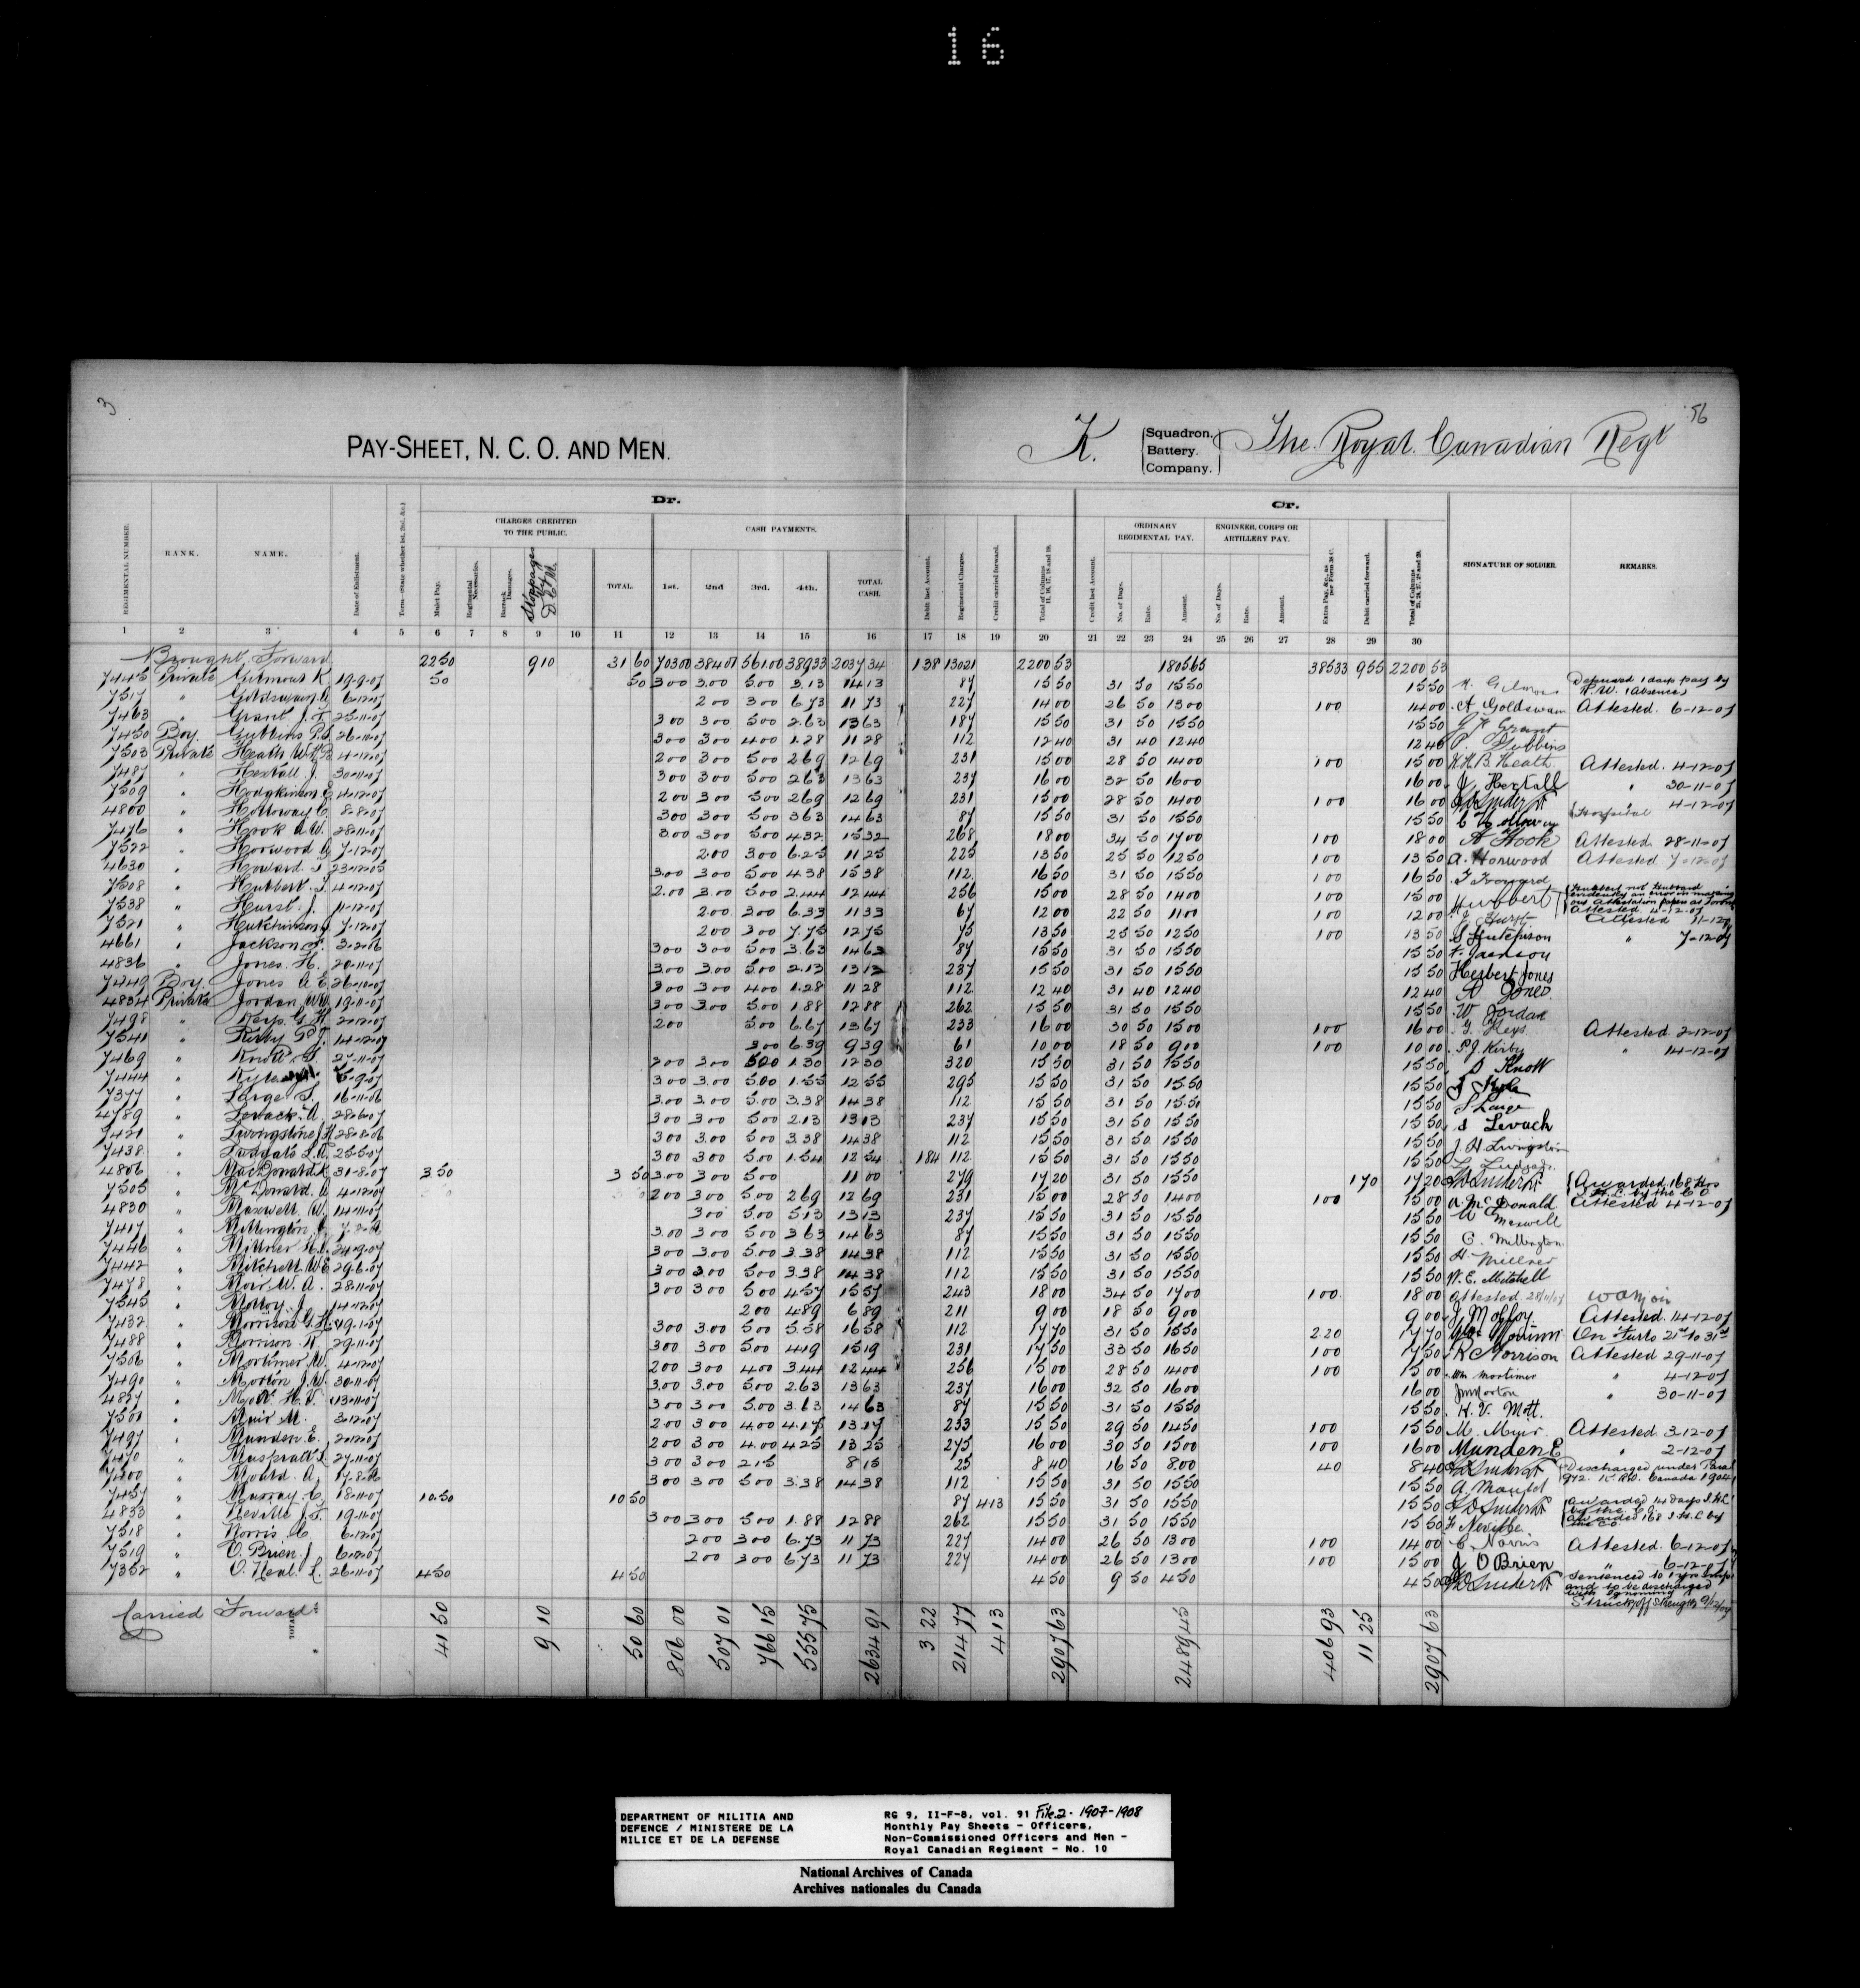 16
3
56
PAY-SHEET, N. C. O. AND MEN.
K. Squadron. Battery. Company. The Royal Canadian Regt
Dr. Cr.
CHARGES CREDITED TO THE PUBLIC. CASH PAYMENTS. ORDINARY REGIMENTAL PAY. ENGINEER, CORPS OR ARTILLERY PAY.
REGIMENTAL NUMBER. RANK. NAME. Date of Enlistment. Term—(State whether 1st, 2nd, &c.) Mulct Pay. Regimental Necessaries. Barrack Damages. Stoppages by D.C.M. TOTAL. 1st. 2nd 3rd. 4th. TOTAL CASH. Debit last Account. Regimental Charges. Credit carried forward. Total of Columns 11, 16, 17, 18 and 19. Credit last Account. No. of Days. Rate. Amount. No. of Days. Rate. Amount. Extra Pay, &c., as per Form 38 C. Debit carried forward. Total of Columns 21, 24, 27, 28 and 29. SIGNATURE OF SOLDIER. REMARKS.
1 2 3 4 5 6 7 8 9 10 11 12 13 14 15 16 17 18 19 20 21 22 23 24 25 26 27 28 29 30
Brought Forward 22 50 9 10 31 60 703 00 384 01 561 00 389 33 2037 34 1 38 130 21 2200 53 1805 65 385 33 9 55 2200 53
7445 Private Gilmour K 19-9-07 50 50 3 00 3.00 5.00 3.13 14 13 87 15 50 31 50 15 50 15 50 K. Gilmour Deprived 1 days pay by R.W. (Absence)
7517 " Goldswain A 6-12-07 2 00 3 00 6.73 11 73 2 27 14 00 26 50 13 00 1 00 14 00 A Goldswain Attested. 6-12-07
7463 " Grant J. F. 25-11-07 3 00 3 00 5 00 2.63 13 63 1 87 15 50 31 50 15 50 15 50 J F Grant
7450 Boy. Gubbins P.S. 26-11-07 3 00 3 00 4 00 1.28 11 28 1 12 12 40 31 40 12 40 12 40 P. Gubbins
7503 Private Heath W.H.B 4-12-07 2 00 3 00 5 00 2 69 12 69 2 31 15 00 28 50 14 00 1 00 15 00 W.H.B Heath Attested. 4-12-07
7487 " Hextall J. 30-11-07 3 00 3 00 5 00 2 63 13 63 2 37 16 00 32 50 16 00 16 00 J. Hextall " 30-11-07
7509 " Hodgkinson E 4-12-07 2 00 3 00 5 00 2 69 12 69 2 31 15 00 28 50 14 00 1 00 16 00 " 4-12-07
4800 " Holloway C. 8-8-07 3 00 3 00 5 00 3 63 14 63 87 15 50 31 50 15 50 15 50 C Holloway Hospital
7476 " Hook A.W. 28-11-07 3 00 3 00 5 00 4 32 15 32 2 68 18 00 34 50 17 00 1 00 18 00 A Hook Attested 28-11-07
7522 " Horwood A 7-12-07 2.00 3 00 6.25 11 25 2 25 13 50 25 50 12 50 1 00 13 50 A. Horwood Attested 7-12-07
4630 " Howard. T 23-12-05 3 00 3 00 5 00 4 38 15 38 1 12 16 50 31 50 15 50 1 00 16 50 T Howard
7508 " Hubbert. T. 4-12-07 2.00 3.00 5.00 2.44 12 44 2 56 15 00 28 50 14 00 1 00 15 00 Hubbert Hubbert not Hubbard evidently an error in making out Attestation paper at Toronto Attested 4-12-07
7538 " Hurst. J. 11-12-07 2.00 3 00 6.33 11 33 67 12 00 22 50 11 00 1 00 12 00 J Hurst Attested 11-12-07
7521 " Hutchinson J 7-12-07 2 00 3 00 7.75 12 75 75 13 50 25 50 12 50 1 00 13 50 S Hutchison " 7-12-07
4661 " Jackson F. 3-2-06 3 00 3 00 5 00 3.63 14 63 87 15 50 31 50 15 50 15 50 F. Jackson
4836 " Jones. H. 20-11-07 3.00 3.00 5.00 2.13 13 13 2 37 15 50 31 50 15 50 15 50 Herbert Jones
7449 Boy. Jones A E 26-11-07 3 00 3 00 4 00 1.28 11 28 1 12 12 40 31 40 12 40 12 40 A Jones.
4834 Private Jordan W 19-11-07 3 00 3.00 5.00 1.88 12 88 2 62 15 50 31 50 15 50 15 50 W Jordan
7498 " Keys. G. H. 2-12-07 2 00 5 00 6.67 13 67 2 33 16 00 30 50 15 00 1 00 16 00 G. Keys. Attested 2-12-07
7541 " Kirby P J. 14-12-07 3 00 6.39 9 39 61 10 00 18 50 9 00 1 00 10 00 P.J. Kirby " 14-12-07
7469 " Knott S. 27-11-07 2 00 3 00 5 00 1.30 12 30 3 20 15 50 31 50 15 50 15 50 S Knott
7444 " Kyle 5-9-07 3 00 3.00 5.00 1.55 12 55 2 95 15 50 31 50 15 50 15 50 J Kyle
7377 " Large S. 16-11-06 3.00 3.00 5.00 3.38 14 38 1 12 15 50 31 50 15 50 15 50 S Large
4789 " Levack A. 28-6-07 3 00 3 00 5 00 2 13 13 13 2 37 15 50 31 50 15 50 15 50 A Levack
7421 " Livingstone J.H 28-8-06 3 00 3.00 5 00 3.38 14 38 1 12 15 50 31 50 15 50 15 50 J. H Livingston
7438 " Ludgate L.A. 25-5-07 3 00 3 00 5 00 1.54 12 54 1 84 1 12 15 50 31 50 15 50 15 50 L. Ludgate
4806 " MacDonald K 31-8-07 3 50 3 50 3 00 3 00 5 00 11 00 2 79 17 20 31 50 15 50 1 70 17 20 Awarded 168 Hrs I.H.L. by the C O
7505 " McDonald A 4-12-07 2 00 3 00 5.00 2 69 12 69 2 31 15 00 28 50 14 00 1 00 15 00 A. McDonald Attested 4-12-07
4830 " Maxwell W. 14-11-07 3 00 5.00 5 13 13 13 2 37 15 50 31 50 15 50 15 50 W Maxwell
7417 " Millington C 7-8-06 3.00 3 00 5 00 3 63 14 63 87 15 50 31 50 15 50 15 50 C. Millington.
7446 " Millner H.C. 24-9-07 3 00 3 00 5.00 3.38 14 38 1 12 15 50 31 50 15 50 15 50 H. Millner
7442 " Mitchell W.E 29-6-07 3 00 3.00 5 00 3.38 14 38 1 12 15 50 31 50 15 50 15 50 W.E. Mitchell
7478 " Moir W. A. 28-11-07 3 00 3 00 5 00 4 57 15 57 2 43 18 00 34 50 17 00 1 00 18 00 Attested 28/11/07 W a Moir
7545 " Molloy. J 14-12-07 2 00 4 89 6 89 2 11 9 00 18 50 9 00 9 00 J Molloy Attested. 14-12-07
7432 " Morrison G.H. 19-1-07 3 00 3.00 5 00 5.58 16 58 1 12 17 70 31 50 15 50 2 20 17 70 On Furlo 21st to 31st
7488 " Morrison K 29-11-07 3 00 3 00 5 00 4 19 15 19 2 31 17 50 33 50 16 50 1 00 17 50 K Morrison Attested 29-11-07
7506 " Mortimer W. 4-12-07 2 00 3 00 4 00 3 44 12 44 2 56 15 00 28 50 14 00 1 00 15 00 Wm Mortimer " 4-12-07
7490 " Morton J.W. 30-11-07 3.00 3.00 5.00 2.63 13 63 2 37 16 00 32 50 16 00 16 00 J W Morton " 30-11-07
4827 " Mott H. V. 13-11-07 3 00 3 00 5.00 3.63 14 63 87 15 50 31 50 15 50 15 50 H. V. Mott.
7501 " Muir M. 3-12-07 2 00 3 00 4.00 4.17 13 17 2 33 15 50 29 50 14 50 1 00 15 50 M. Muir Attested 3-12-07
7497 " Munden E. 2-12-07 2 00 3 00 4.00 4 25 13 25 2 75 16 00 30 50 15 00 1 00 16 00 Munden E " 2-12-07
7470 " Muspratt 27-11-07 3 00 3 00 2 15 8 15 25 8 40 16 50 8.00 40 8 40 Discharged under Para 942. K.R&O. Canada 1904
7400 " Mould. A. 17-8-06 3 00 3 00 5 00 3.38 14 38 1 12 15 50 31 50 15 50 15 50 A. Mauld
7457 " Murray C. 18-11-07 10.50 10 50 87 4 13 15 50 31 50 15 50 15 50 Awarded 14 days I.H.L by the C.O. Awarded 168 I.H.L by the C.O.
4833 " Neville J.F. 19-11-07 3 00 3 00 5 00 1.88 12 88 2 62 15 50 31 50 15 50 15 50 F Neville
7518 " Norris C. 6-12-07 2 00 3 00 6.73 11 73 2 27 14 00 26 50 13 00 1 00 14 00 C Norris Attested. 6-12-07
7519 " O. Brien. J 6-12-07 2 00 3 00 6.73 11 73 2 27 14 00 26 50 13 00 1 00 15 00 J O Brien " 6-12-07
7352 " O. Neal. L. 26-11-07 4 50 4 50 4 50 9 50 4 50 4 50 Sentenced to 1 yrs Imp and to be discharged with Ignominy Struck off Strength 9/12/07
Carried Forward TOTAL 41 50 9 10 50 60 806 00 507 01 766 15 555 75 2634 91 3 22 214 77 4 13 2907 63 2489 45 406 93 11 25 2907 63
DEPARTMENT OF MILITIA AND
DEFENCE / MINISTERE DE LA
MILICE ET DE LA DEFENSE
RG 9, II-F-8, vol. 91 File 2 - 1907-1908
Monthly Pay Sheets - Officers,
Non-Commissioned Officers and Men -
Royal Canadian Regiment - No. 10
National Archives of Canada
Archives nationales du Canada